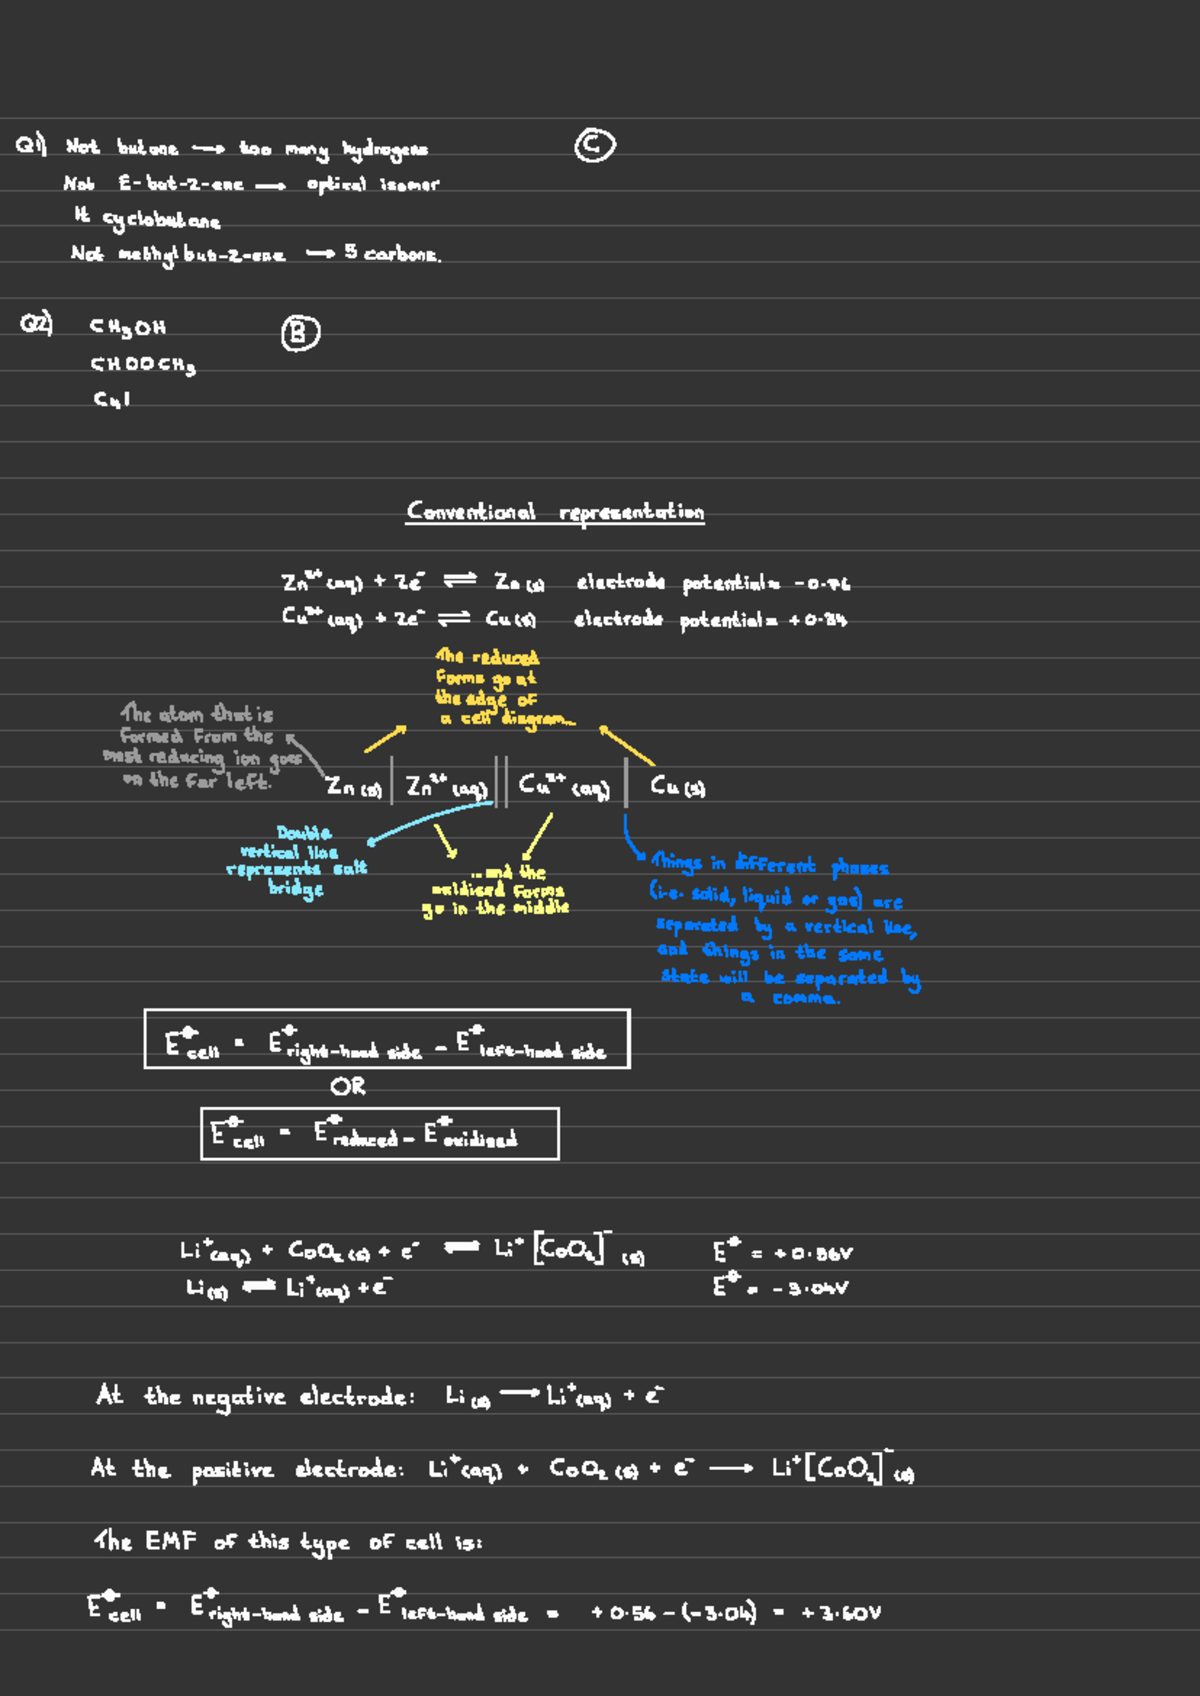 Q1) Not butane → too many hydrogens
C
Not E-but-2-ene → optical isomer
It cyclobutane
Not methylbut-2-ene → 5 carbons.
Q2) CH₃OH
B
CHOOCH₃
Conventional representation
Zn²⁺(aq) + 2e⁻ ⇌ Zn(s) electrode potential = -0.76
Cu²⁺(aq) + 2e⁻ ⇌ Cu(s) electrode potential = +0.34
The reduced
forms go at
the edge of
a cell diagram...
The atom that is
formed from the
most reducing ion goes
on the far left.
Zn(s) | Zn²⁺(aq) || Cu²⁺(aq) | Cu(s)
Double
vertical line
represents salt
bridge
...and the
oxidised forms
go in the middle
Things in different phases
(i.e. solid, liquid or gas) are
separated by a vertical line,
and things in the same
state will be separated by
a comma.
E⦵cell = E⦵right-hand side - E⦵left-hand side
OR
E⦵cell = E⦵reduced - E⦵oxidised
Li⁺(aq) + CoO₂(s) + e⁻ ⇌ Li⁺[CoO₂]⁻(s) E⦵ = +0.56V
Li(s) ⇌ Li⁺(aq) + e⁻ E⦵ = -3.04V
At the negative electrode: Li(s) → Li⁺(aq) + e⁻
At the positive electrode: Li⁺(aq) + CoO₂(s) + e⁻ → Li⁺[CoO₂]⁻(s)
The EMF of this type of cell is:
E⦵cell = E⦵right-hand side - E⦵left-hand side = +0.56 - (-3.04) = +3.60V